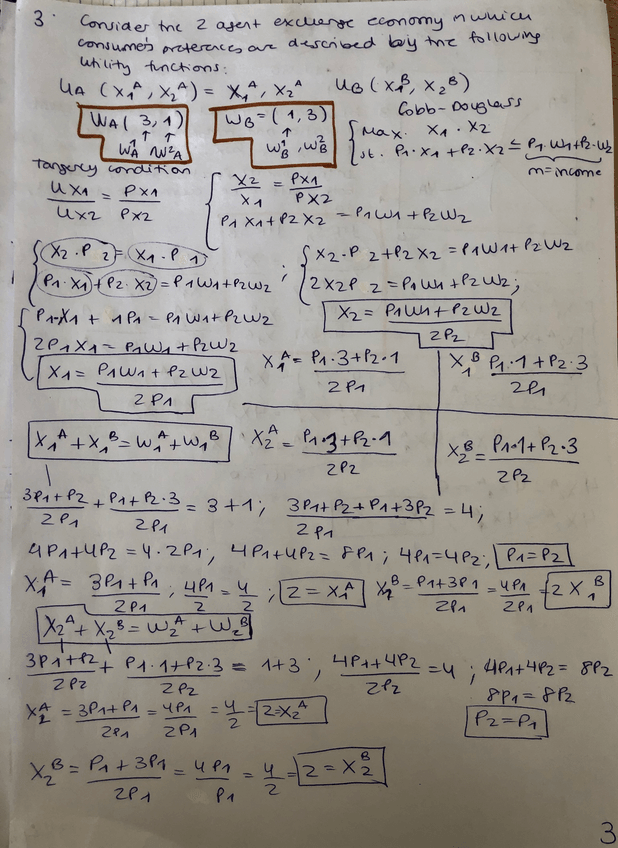 3. Consider the 2 agent exchange economy in which
consumers preferences are described by the following
utility functions:
u_A (x_1^A, x_2^A) = x_1^A, x_2^A u_B (x_1^B, x_2^B)
Cobb-Douglass
W_A (3, 1) W_B = (1, 3)
↑ ↑ ↑
W_A^1 W_A^2 W_B^1, W_B^2
{ Max. x_1 · x_2
st. P_1 · x_1 + P_2 · x_2 ≤ P_1 · w_1 + P_2 · w_2
m = income
Tangency condition
u_x1 / u_x2 = P_x1 / P_x2
{ x_2 / x_1 = P_x1 / P_x2
P_1 x_1 + P_2 x_2 = P_1 w_1 + P_2 w_2
{ x_2 · P_2 = x_1 · P_1
P_1 · x_1 + P_2 · x_2 = P_1 w_1 + P_2 w_2 ;
{ x_2 · P_2 + P_2 x_2 = P_1 w_1 + P_2 w_2
2x_2 P_2 = P_1 w_1 + P_2 w_2 ;
x_2 = (P_1 w_1 + P_2 w_2) / 2P_2
{ P_1 · x_1 + 1P_1 = P_1 w_1 + P_2 w_2
2P_1 x_1 = P_1 w_1 + P_2 w_2
x_1 = (P_1 w_1 + P_2 w_2) / 2P_1
x_1^A = (P_1 · 3 + P_2 · 1) / 2P_1 x_1^B (P_1 · 1 + P_2 · 3) / 2P_1
x_1^A + x_1^B = w_1^A + w_1^B x_2^A = (P_1 · 3 + P_2 · 1) / 2P_2 x_2^B = (P_1 · 1 + P_2 · 3) / 2P_2
(3P_1 + P_2) / 2P_1 + (P_1 + P_2 · 3) / 2P_1 = 3 + 1 ; (3P_1 + P_2 + P_1 + 3P_2) / 2P_1 = 4 ;
4P_1 + 4P_2 = 4 · 2P_1 , 4P_1 + 4P_2 = 8P_1 ; 4P_1 = 4P_2 , P_1 = P_2
x_1^A = (3P_1 + P_1) / 2P_1 ; 4P_1 / 2 = 4 / 2 ; 2 = x_1^A x_2^B = (P_1 + 3P_1) / 2P_1 = 4P_1 / 2P_1 = 2 x_1^B
x_2^A + x_2^B = w_2^A + w_2^B
(3P_1 + P_2) / 2P_2 + (P_1 · 1 + P_2 · 3) / 2P_2 = 1 + 3 , (4P_1 + 4P_2) / 2P_2 = 4 ; 4P_1 + 4P_2 = 8P_2
8P_1 = 8P_2
x_2^A = (3P_1 + P_1) / 2P_1 = 4P_1 / 2P_1 = 4 / 2 = 2 = x_2^A P_2 = P_1
x_2^B = (P_1 + 3P_1) / 2P_1 = 4P_1 / P_1 = 4 / 2 = 2 = x_2^B
3